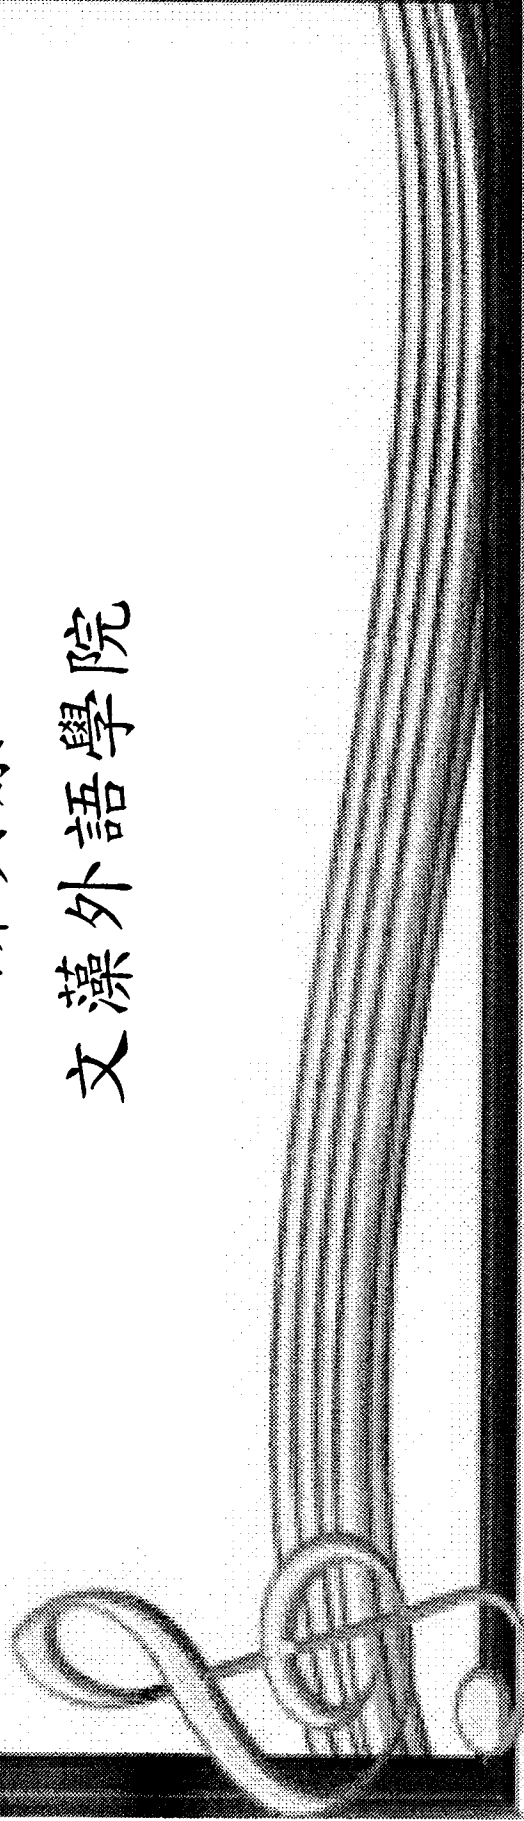 文藻外語學院